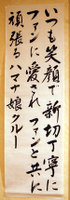 いつも笑顔で新切丁寧に
ファンに愛されファンと共に
頑張るハマナ娘クルー